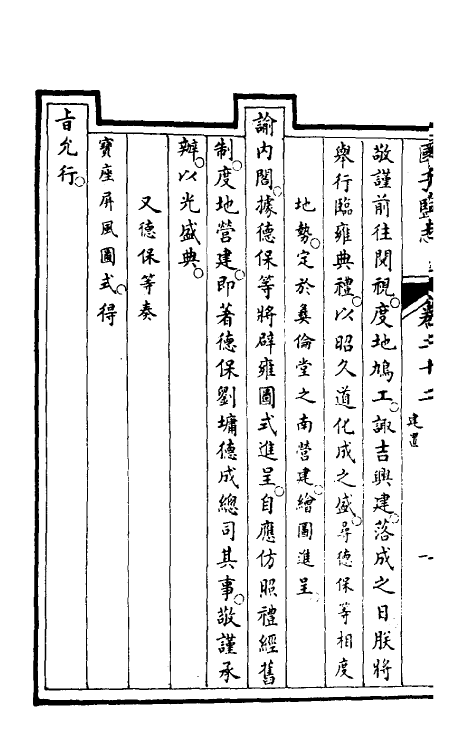 國子監志
卷二十二
建置
一
敬謹前往閱視。度地鳩工。諏吉興建。落成之日朕將
舉行臨雍典禮。以昭久道化成之盛。尋德保等相度
地勢。定於彝倫堂之南營建。繪圖進呈。
諭內閣。據德保等將辟雍圖式進呈。自應仿照禮經舊
制。度地營建。即著德保劉墉德成總司其事。敬謹承
辦。以光盛典。
又德保等奏
寶座屏風圖式。得
旨允行。